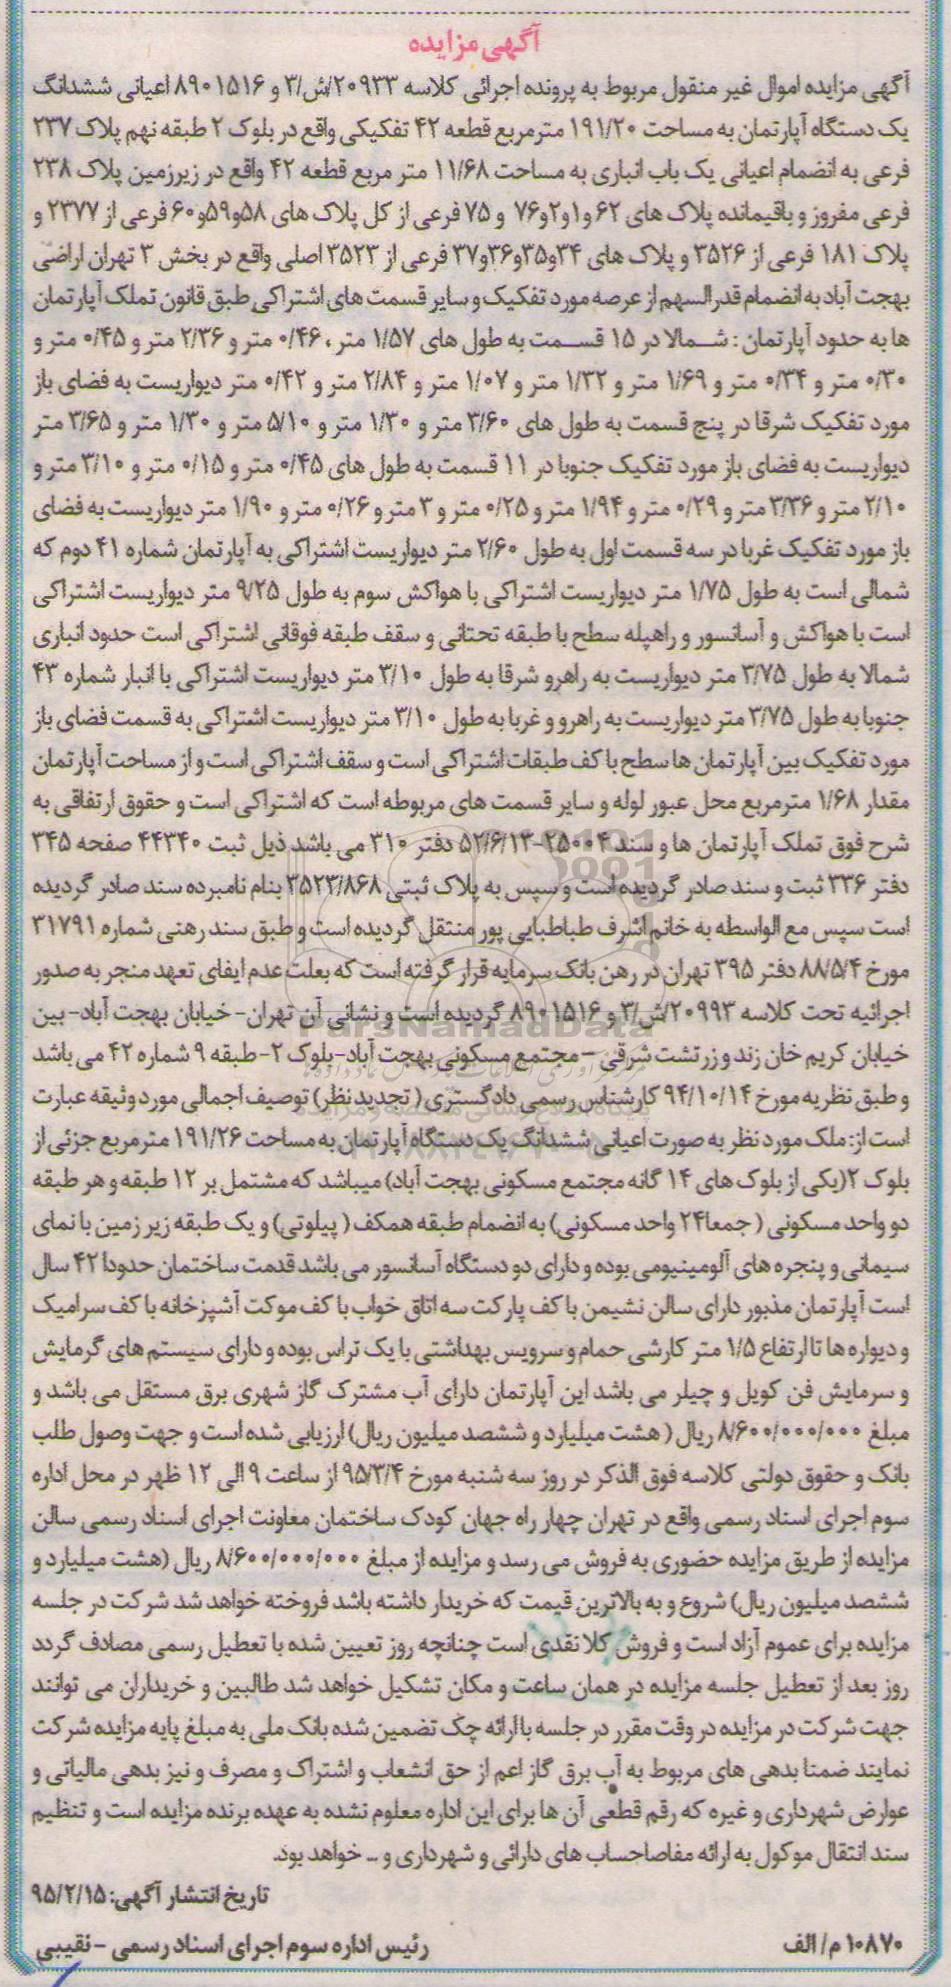 آگهی مزایده
آگهی مزایده اموال غیر منقول مربوط به پرونده اجرائی کلاسه ۲۰۹۳۳/ش/۳ و ۸۹۰۱۵۱۶ اعیانی ششدانگ
یک دستگاه آپارتمان به مساحت ۱۹۱/۲۰ مترمربع قطعه ۴۲ تفکیکی واقع در بلوک ۲ طبقه نهم پلاک ۲۳۷
فرعی به انضمام اعیانی یک باب انباری به مساحت ۱۱/۶۸ متر مربع قطعه ۴۲ واقع در زیرزمین پلاک ۲۳۸
فرعی مفروز و باقیمانده پلاک های ۶۲ و۱و۲و۷۶ و ۷۵ فرعی از کل پلاک های ۵۸و۵۹و۶۰ فرعی از ۲۳۷۷ و
پلاک ۱۸۱ فرعی از ۳۵۲۶ و پلاک های ۳۴و۳۵و۳۶و۳۷ فرعی از ۳۵۲۳ اصلی واقع در بخش ۳ تهران اراضی
بهجت آباد به انضمام قدرالسهم از عرصه مورد تفکیک و سایر قسمت های اشتراکی طبق قانون تملک آپارتمان
ها به حدود آپارتمان : شمالا در ۱۵ قسمت به طول های ۱/۵۷ متر ، ۰/۴۶ متر و ۲/۳۶ متر و ۰/۴۵ متر و
۰/۳۰ متر و ۰/۳۴ متر و ۱/۶۹ متر و ۱/۳۲ متر و ۱/۰۷ متر و ۲/۸۴ متر و ۰/۴۲ متر دیواریست به فضای باز
مورد تفکیک شرقا در پنج قسمت به طول های ۳/۶۰ متر و ۱/۳۰ متر و ۵/۱۰ متر و ۱/۳۰ متر و ۳/۶۵ متر
دیواریست به فضای باز مورد تفکیک جنوبا در ۱۱ قسمت به طول های ۰/۴۵ متر و ۰/۱۵ متر و ۳/۱۰ متر و
۲/۱۰ متر و ۳/۳۶ متر و ۰/۲۹ متر و ۱/۹۴ متر و ۰/۲۵ متر و ۳ متر و ۰/۲۶ متر و ۱/۹۰ متر دیواریست به فضای
باز مورد تفکیک غربا در سه قسمت اول به طول ۲/۶۰ متر دیواریست اشتراکی به آپارتمان شماره ۴۱ دوم که
شمالی است به طول ۱/۷۵ متر دیواریست اشتراکی با هواکش سوم به طول ۹/۲۵ متر دیواریست اشتراکی
است با هواکش و آسانسور و راهپله سطح با طبقه تحتانی و سقف طبقه فوقانی اشتراکی است حدود انباری
شمالا به طول ۳/۷۵ متر دیواریست به راهرو شرقا به طول ۳/۱۰ متر دیواریست اشتراکی با انبار شماره ۴۳
جنوبا به طول ۳/۷۵ متر دیواریست به راهرو و غربا به طول ۳/۱۰ متر دیواریست اشتراکی به قسمت فضای باز
مورد تفکیک بین آپارتمان ها سطح با کف طبقات اشتراکی است و سقف اشتراکی است و از مساحت آپارتمان
مقدار ۱/۶۸ مترمربع محل عبور لوله و سایر قسمت های مربوطه است که اشتراکی است و حقوق ارتفاقی به
شرح فوق تملک آپارتمان ها و سند ۲۵۰۰۴-۵۲/۶/۱۳ دفتر ۳۱۰ می باشد ذیل ثبت ۴۴۳۴۰ صفحه ۳۴۵
دفتر ۳۳۶ ثبت و سند صادر گردیده است و سپس به پلاک ثبتی ۳۵۲۳/۸۶۸ بنام نامبرده سند صادر گردیده
است سپس مع الواسطه به خانم اشرف طباطبایی پور منتقل گردیده است و طبق سند رهنی شماره ۳۱۷۹۱
مورخ ۸۸/۵/۴ دفتر ۳۹۵ تهران در رهن بانک سرمایه قرار گرفته است که بعلت عدم ایفای تعهد منجر به صدور
اجرائیه تحت کلاسه ۲۰۹۹۳/ش/۳ و ۸۹۰۱۵۱۶ گردیده است و نشانی آن تهران- خیابان بهجت آباد- بین
خیابان کریم خان زند و زرتشت شرقی – مجتمع مسکونی بهجت آباد-بلوک ۲- طبقه ۹ شماره ۴۲ می باشد
و طبق نظریه مورخ ۹۴/۱۰/۱۴ کارشناس رسمی دادگستری ( تجدید نظر) توصیف اجمالی مورد وثیقه عبارت
است از: ملک مورد نظر به صورت اعیانی ششدانگ یک دستگاه آپارتمان به مساحت ۱۹۱/۲۶ مترمربع جزئی از
بلوک ۲(یکی از بلوک های ۱۴ گانه مجتمع مسکونی بهجت آباد) میباشد که مشتمل بر ۱۲ طبقه و هر طبقه
دو واحد مسکونی ( جمعا۲۴ واحد مسکونی) به انضمام طبقه همکف ( پیلوتی) و یک طبقه زیر زمین با نمای
سیمانی و پنجره های آلومینیومی بوده و دارای دو دستگاه آسانسور می باشد قدمت ساختمان حدودا ۴۲ سال
است آپارتمان مذبور دارای سالن نشیمن با کف پارکت سه اتاق خواب با کف موکت آشپزخانه با کف سرامیک
و دیواره ها تا ارتفاع ۱/۵ متر کارشی حمام و سرویس بهداشتی با یک تراس بوده و دارای سیستم های گرمایش
و سرمایش فن کویل و چیلر می باشد این آپارتمان دارای آب مشترک گاز شهری برق مستقل می باشد و
مبلغ ۸/۶۰۰/۰۰۰/۰۰۰ ریال ( هشت میلیارد و ششصد میلیون ریال) ارزیابی شده است و جهت وصول طلب
بانک و حقوق دولتی کلاسه فوق الذکر در روز سه شنبه مورخ ۹۵/۳/۴ از ساعت ۹ الی ۱۲ ظهر در محل اداره
سوم اجرای اسناد رسمی واقع در تهران چهار راه جهان کودک ساختمان معاونت اجرای اسناد رسمی سالن
مزایده از طریق مزایده حضوری به فروش می رسد و مزایده از مبلغ ۸/۶۰۰/۰۰۰/۰۰۰ ریال (هشت میلیارد و
ششصد میلیون ریال) شروع و به بالاترین قیمت که خریدار داشته باشد فروخته خواهد شد شرکت در جلسه
مزایده برای عموم آزاد است و فروش کلا نقدی است چنانچه روز تعیین شده با تعطیل رسمی مصادف گردد
روز بعد از تعطیل جلسه مزایده در همان ساعت و مکان تشکیل خواهد شد طالبین و خریداران می توانند
جهت شرکت در مزایده در وقت مقرر در جلسه با ارائه چک تضمین شده بانک ملی به مبلغ پایه مزایده شرکت
نمایند ضمنا بدهی های مربوط به آب برق گاز اعم از حق انشعاب و اشتراک و مصرف و نیز بدهی مالیاتی و
عوارض شهرداری و غیره که رقم قطعی آن ها برای این اداره معلوم نشده به عهده برنده مزایده است و تنظیم
سند انتقال موکول به ارائه مفاصاحساب های دارائی و شهرداری و ... خواهد بود.
تاریخ انتشار آگهی: ۹۵/۲/۱۵
۱۰۸۷۰ م/ الف
رئیس اداره سوم اجرای اسناد رسمی - نقیبی
ParsNamadData